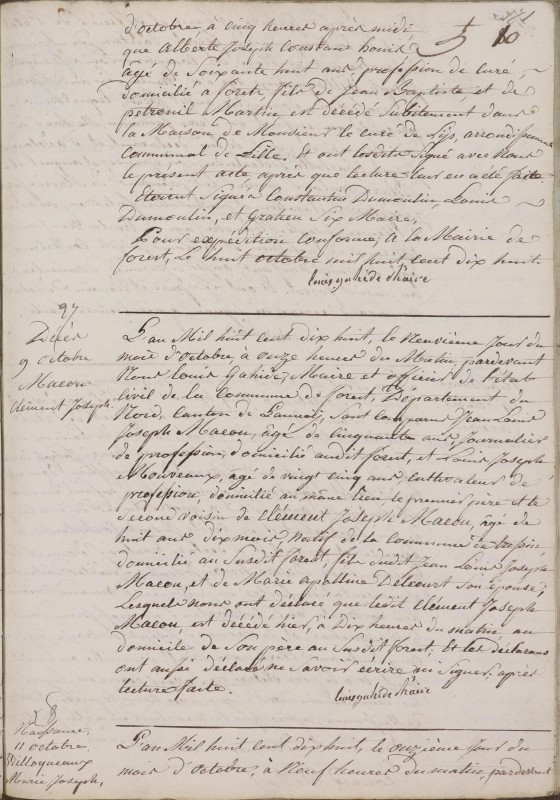 d'octobre, à cinq heures après midi,
que Alberte Joseph Constant
âgé de Soixante huit ans, profession de curé,
domicilié à foret fils de Jean Baptiste et de
petronil Martin est décédé Subitement dans
la Maison de Monsieur le curé de Lys, arrondissement
communal de Lille. Et ont lesdits Signé avec Nous
le présent acte après que lecture leur en a été faite
Etoient Signés Constantin Dumoulin Louis
Dumoulin, et Gratien Six Maire,
Pour expédition conforme, à la Mairie de
forest, Le huit octobre mil huit cent dix huit.
louis gahide Maire
97
Décès
9 octobre
Macou
Clément Joseph.
L'an Mil huit cent dix huit, le Neuvième Jour du
mois d'octobre, à onze heures du Matin, pardevant
Nous Louis Gahide, Maire et officier de l'état
civil de la Commune de forest, Département du
Nord, Canton de Lannoi, Sont comparus Jean Louis
Joseph Macou, âgé de cinquante ans, Journalier
de profession, domicilié audit forest, et Louis Joseph
Mouveaux, âgé de vingt cinq ans, Cultivateur de
profession, domicilié au même lieu le premier père et le
Second voisin de Clément Joseph Macou, âgé de
huit ans dix mois, Natif de la Commune de
domicilié au Susdit forest, fils dudit Jean Louis Joseph
Macou, et de Marie apolline Delcourt son épouse;
Lesquels nous ont déclaré que ledit Clément Joseph
Macou est décédé hier, à Dix heures du matin au
domicile de Son père au Susdit forest, Et les déclarans
ont aussi déclaré ne Savoir écrire ni Signer, après
lecture faite.
louis gahide Maire
98
Naissance
11 octobre
Willoqueaux
Marie Joseph,
L'an Mil huit cent dix huit, le onzième Jour du
mois d'octobre, à Neuf heures du matin, pardevant